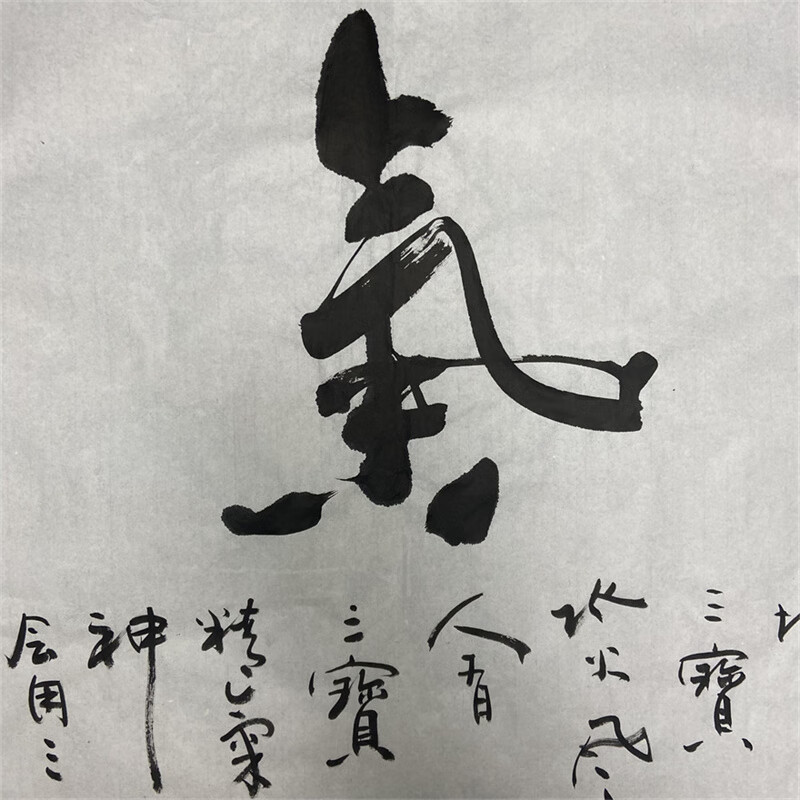 氣
三寶
水火風
人有
三寶
精氣
神
会用三